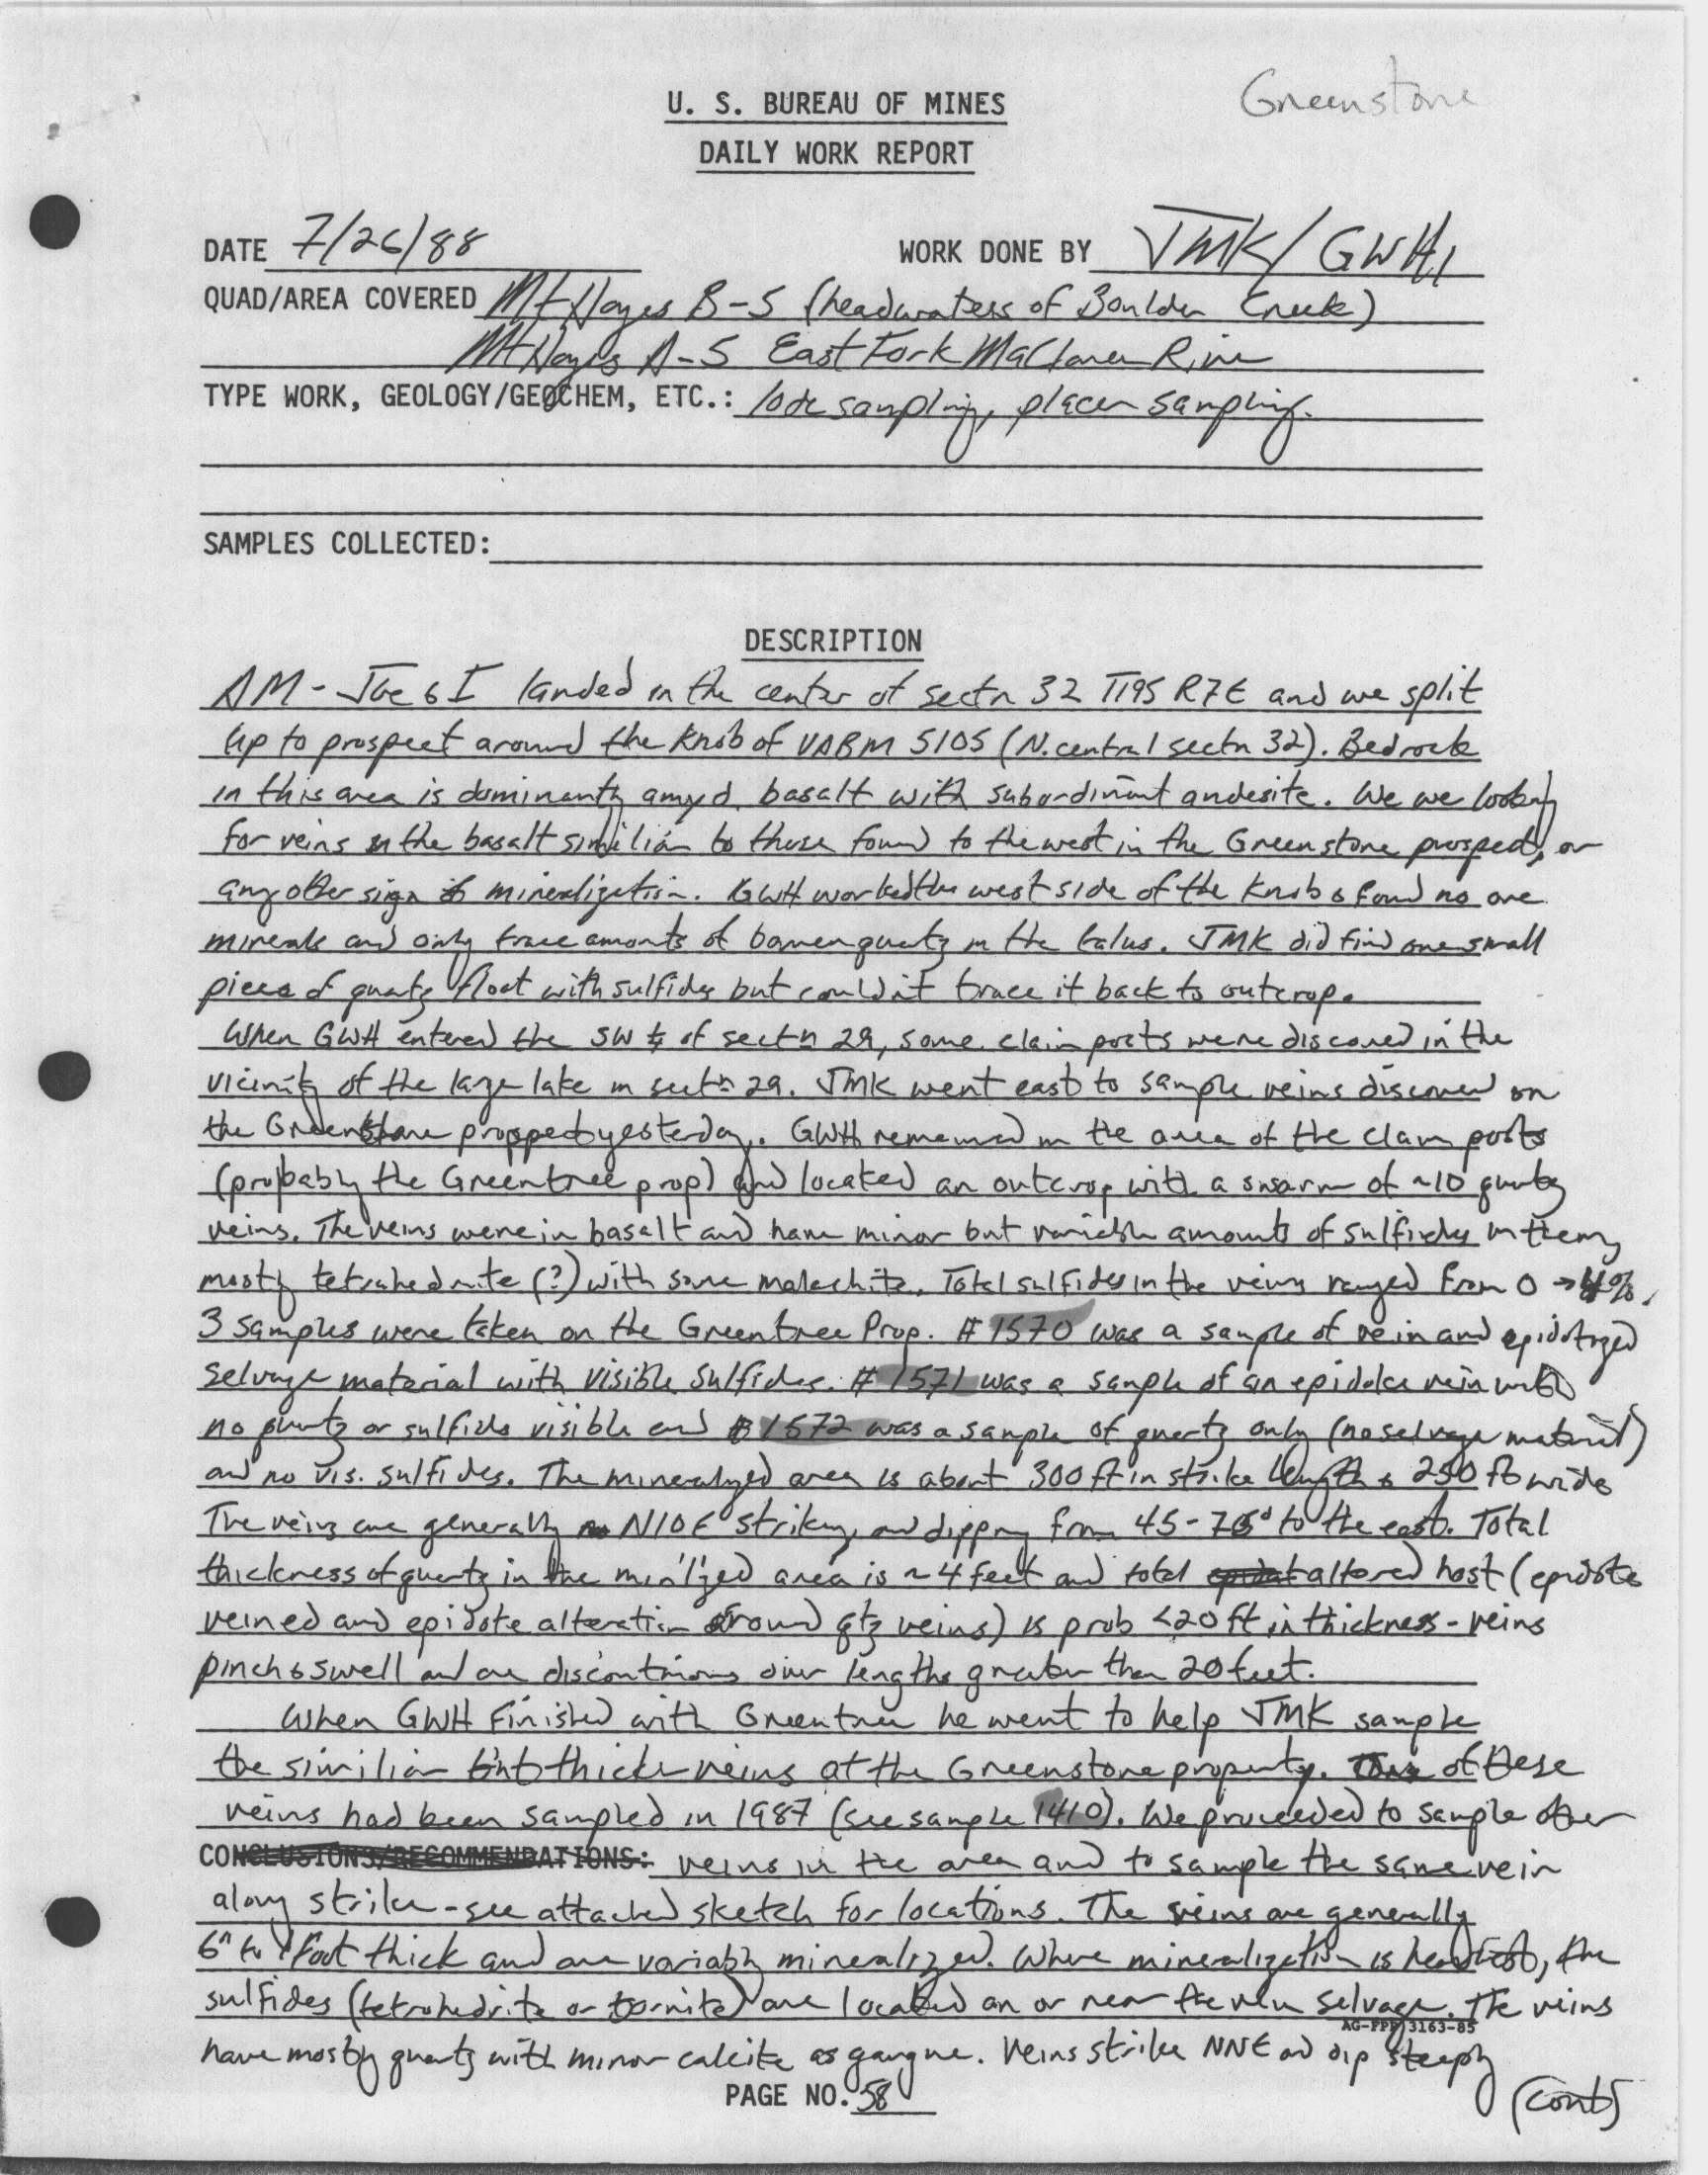 Greenstone
U. S. BUREAU OF MINES
DAILY WORK REPORT
DATE 7/26/88 WORK DONE BY JMK/GWH
QUAD/AREA COVERED Mt Hayes B-5 (headwaters of Boulder Creek)
Mt Hayes A-5 East Fork Maclaren River
TYPE WORK, GEOLOGY/GEOCHEM, ETC.: lode sampling, placer sampling.
SAMPLES COLLECTED:
DESCRIPTION
AM - Joe & I landed in the center of sectn 32 T19S R7E and we split
up to prospect around the knob of VABM 5105 (N. central sectn 32). Bedrock
in this area is dominantly amyd. basalt with subordinant andesite. We we looking
for veins in the basalt similiar to those found to the west in the Greenstone prospect, or
any other sign of mineralization. GWH worked the west side of the knob & found no ore
minerals and only trace amonts of barren quartz in the talus. JMK did find one small
piece of quartz float with sulfides but couldn't trace it back to outcrop.
When GWH entered the SW ¼ of sectn 29, some claim posts were discoved in the
vicinity of the large lake in sectn 29. JMK went east to sample veins discovered on
the Greenstone propped yesterday. GWH remained in the area of the claim posts
(probably the Greentree prop) and located an outcrop with a swarm of ~10 quartz
veins. The veins were in basalt and have minor but variable amounts of sulfides in them,
mostly tetrahedrite (?) with some malachite. Total sulfides in the veins ranged from 0 → 4%.
3 samples were taken on the Greentree Prop. # 1570 was a sample of vein and epidotized
selvage material with visible sulfides. # 1571 was a sample of an epidote vein with
no quartz or sulfides visible and # 1572 was a sample of quartz only (no selvage material)
and no vis. sulfides. The mineralized area is about 300 ft in strike length & 250 ft wide
The veins are generally N10E striking, and dipping from 45-75° to the east. Total
thickness of quartz in the min'lized area is ~4 feet and total altered host (epidote
veined and epidote alteration around qtz veins) is prob <20 ft in thickness - veins
pinch & swell and are discontinous over lengths greater than 20 feet.
When GWH finished with Greentree he went to help JMK sample
the similiar but thicker veins at the Greenstone property. One of these
veins had been sampled in 1987 (see sample 1410). We proceeded to sample other
CONCLUSIONS/RECOMMENDATIONS: veins in the area and to sample the same vein
along strike - see attached sketch for locations. The veins are generally
6" to 1 foot thick and are variably mineralized. Where mineralization is heaviest, the
sulfides (tetrahedrite or bornite) are located on or near the vein selvage. The veins
AG-FPP 3163-85
have mostly quartz with minor calcite as gangue. Veins strike NNE and dip steeply
PAGE NO. 58
(cont)